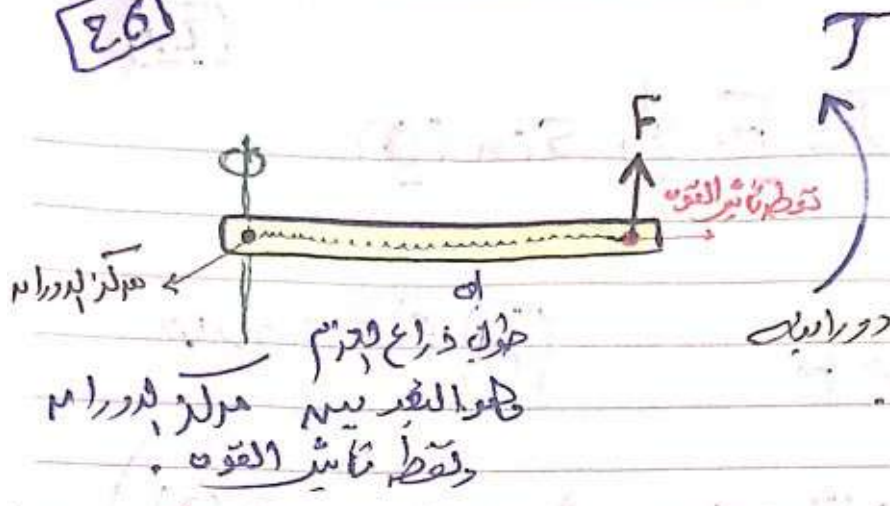 26
T
F
نقطة تأثير القوة
مركز الدوران
d
طول ذراع العزم
دورانية
وهو البعد بين مركز الدوران
ونقطة تأثير القوة.